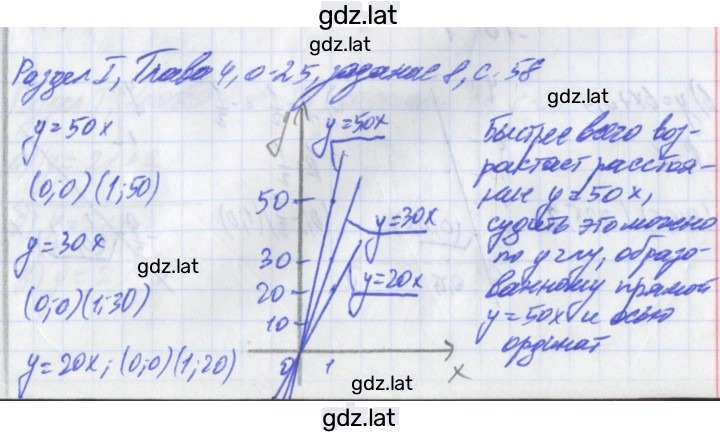 gdz.lat
gdz.lat
Раздел I, Глава 4, О-25, задание 8, с. 58
gdz.lat
y=50x
(0;0) (1;50)
y=30x
gdz.lat
(0;0) (1;30)
y=20x; (0;0) (1;20)
y
y=50x
50
y=30x
30
y=20x
20
10
0
1
x
Быстрее всего воз-
рактает расстоя-
ние y=50x,
gdz.lat
судить это можно
по углу, образо-
ванному прямой
y=50x и осью
ординат
gdz.lat
gdz.lat